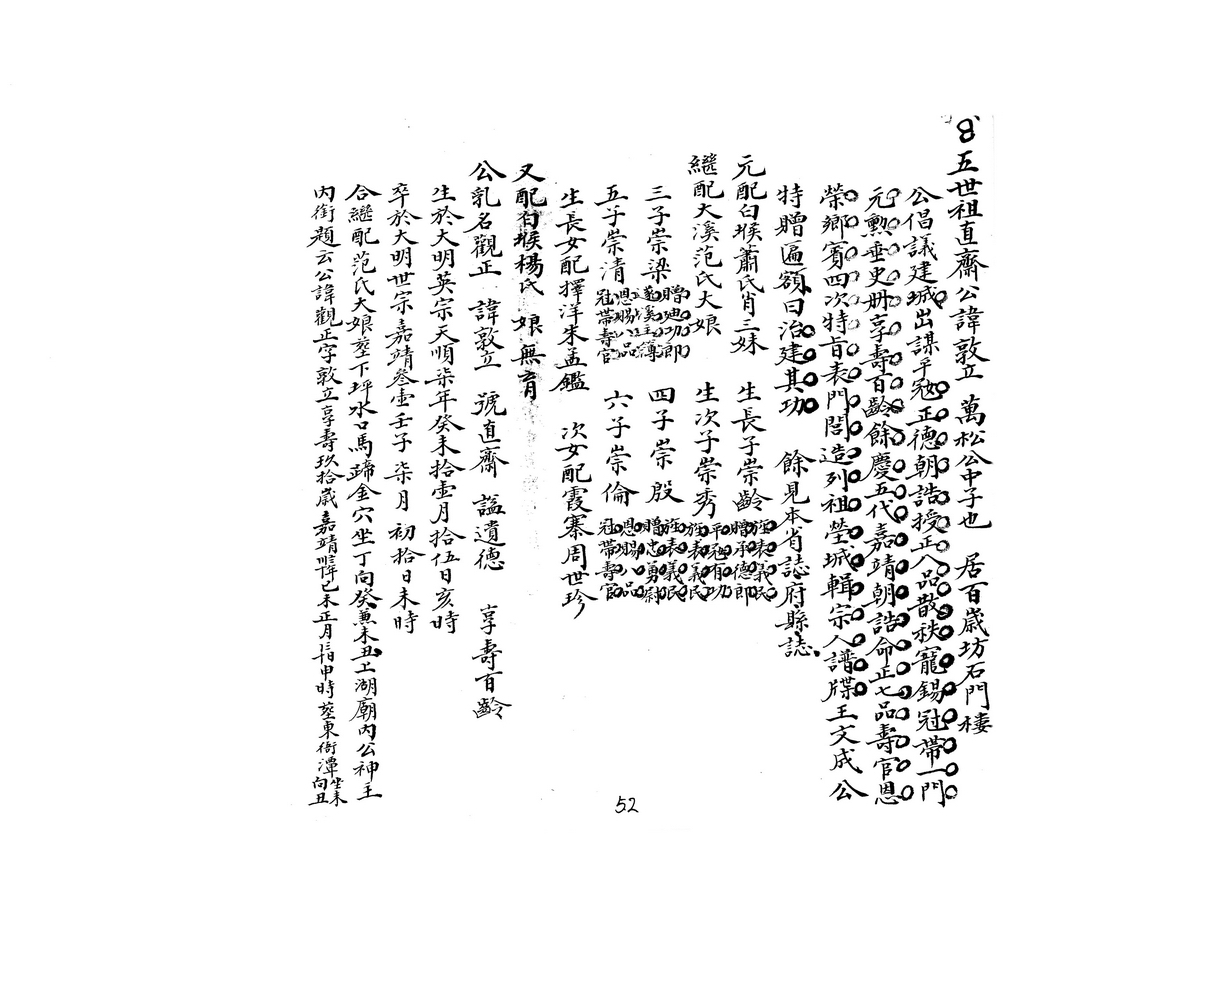 8
五世祖直齋公諱敦立 萬松公中子也 居百歲坊石門樓
公倡議建城出謀平寇正德朝誥授正八品散秩寵錫冠帶一門
元勲垂史册享壽百齡餘慶五代嘉靖朝誥命正七品壽官恩
榮鄉賓四次特旨表門閭造列祖塋城輯宗人譜牒王文成公
特贈匾額曰治建其功 餘見本省誌府縣誌
元配白堠蕭氏肖三妹 生長子崇齡 旌表義民 贈承德郎
繼配大溪范氏大娘 生次子崇秀 平寇有功 旌表義民
三子崇梁 贈迪功郎 遂溪主簿 四子崇殷 旌表義民 贈忠勇尉
五子崇清 恩賜八品 冠帶壽官 六子崇倫 恩賜八品 冠帶壽官
生長女配擇洋朱孟鑑 次女配霞寨周世珍
又配白堠楊氏 娘無育
公乳名觀正 諱敦立 號直齋 謚遺德 享壽百齡
生於大明英宗天順柒年癸未拾壹月拾伍日亥時
卒於大明世宗嘉靖叁壹壬子柒月初拾日未時
合繼配范氏大娘塟下坪水口馬蹄金穴坐丁向癸兼未丑上湖廟內公神主
內銜題云公諱觀正字敦立享壽玖拾歲嘉靖己未正月申時塟東衙潭坐未向丑
52